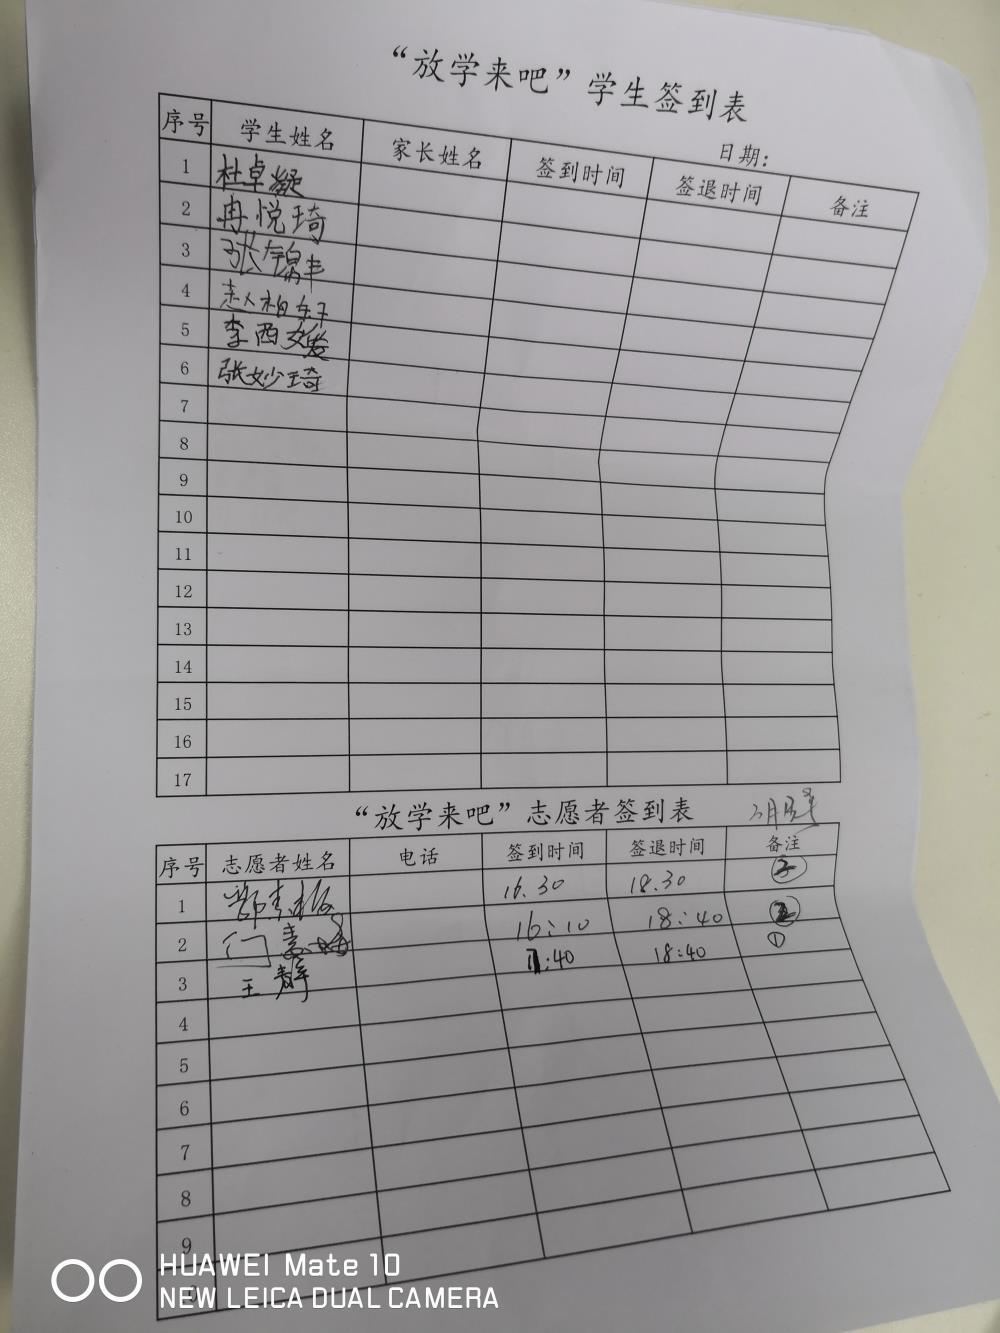 “放学来吧”学生签到表
日期：
序号 学生姓名 家长姓名 签到时间 签退时间 备注
1 杜卓凝
2 冉悦琦
3 张锦丰
4 赵柏
5 李西
6 张妙琦
7
8
9
10
11
12
13
14
15
16
17
“放学来吧”志愿者签到表
序号 志愿者姓名 电话 签到时间 签退时间 备注
1 16.30 18.30
2 门 16:10 18:40 ②
3 王静 :40 18:40 ①
4
5
6
7
8
9
HUAWEI Mate 10
NEW LEICA DUAL CAMERA